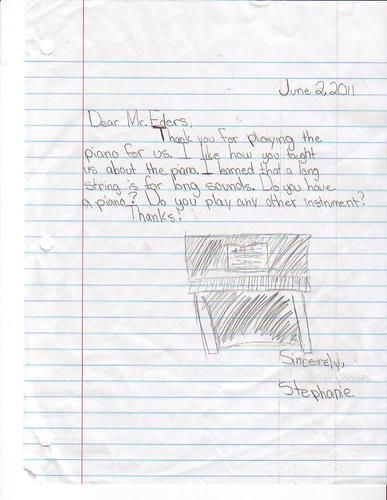 June 2, 2011
Dear Mr. Eders,
Thank you for playing the
piano for us. I like how you taught
us about the piano. I learned that a long
string is for long sounds. Do you have
a piano? Do you play any other instrument?
Thanks!
Sincerely,
Stephanie